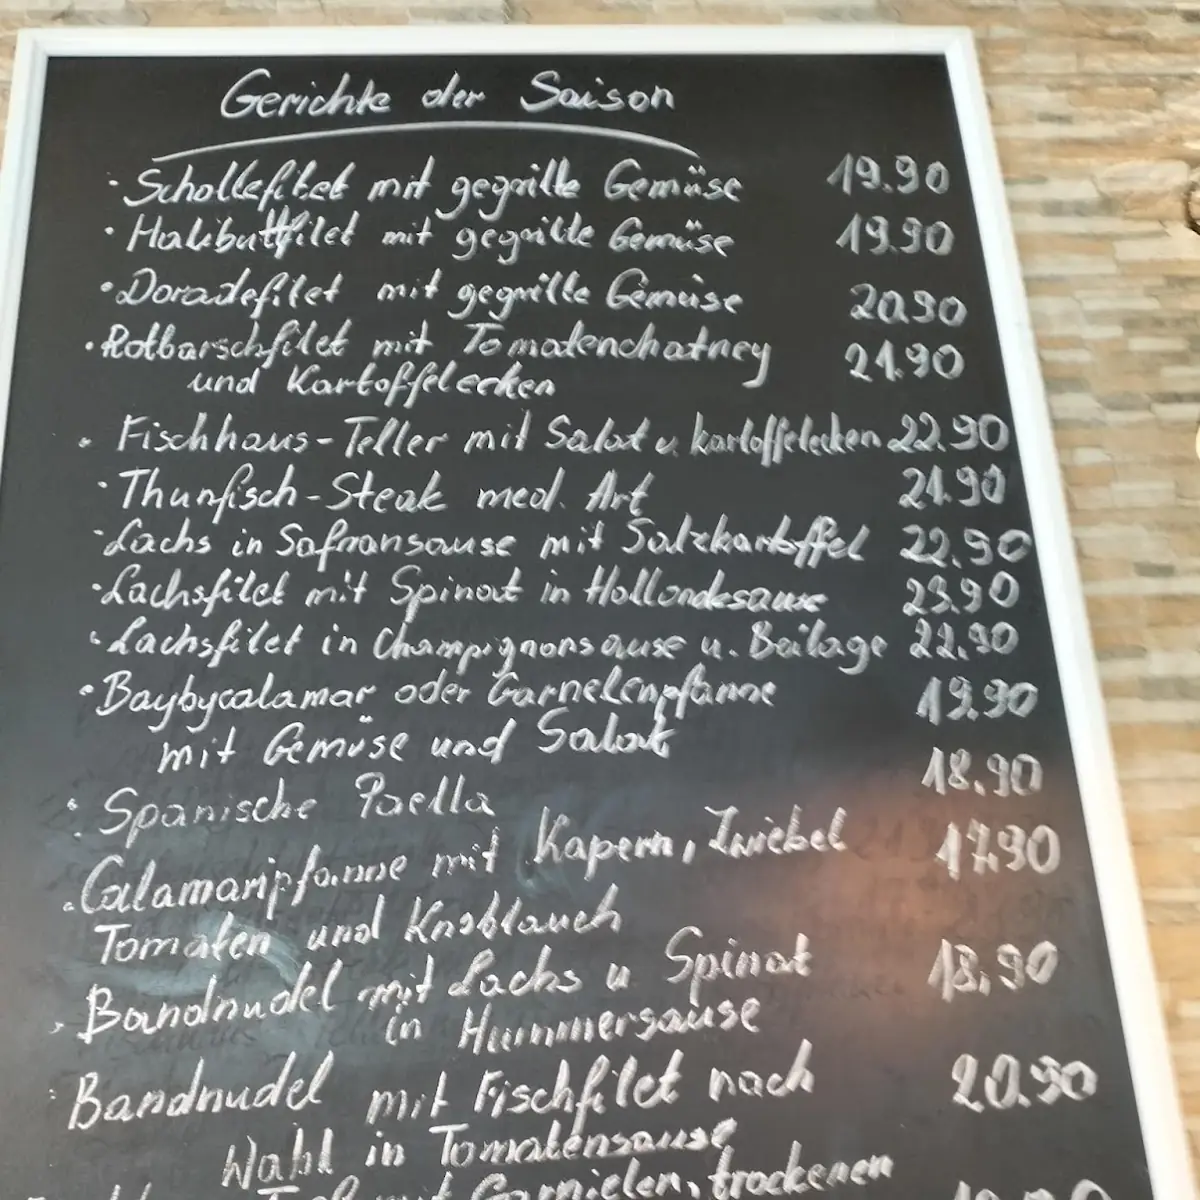 Gerichte der Saison
· Schollefilet mit gegrillte Gemüse 19.90
· Halibuttfilet mit gegrillte Gemüse 19.90
· Doradefilet mit gegrillte Gemüse 20.90
· Rotbarschfilet mit Tomatenchatney 21.90
und Kartoffelecken
· Fischhaus-Teller mit Salat u. kartoffelecken 22.90
· Thunfisch-Steak med. Art 21.90
· Lachs in Safransause mit Salzkartoffel 22.90
· Lachsfilet mit Spinat in Hollondesause 23.90
· Lachsfilet in Champignonsause u. Beilage 22.90
· Baybycalamar oder Garnelenpfanne 19.90
mit Gemüse und Salat
· Spanische Paella 18.90
· Calamaripfanne mit Kapern, Zwiebel 17.90
Tomaten und Knoblauch
· Bandnudel mit Lachs u Spinat 18,90
in Hummersause
· Bandnudel mit Fischfilet nach 20.90
Wahl in Tomatensause
mit Garnielen, trockenen